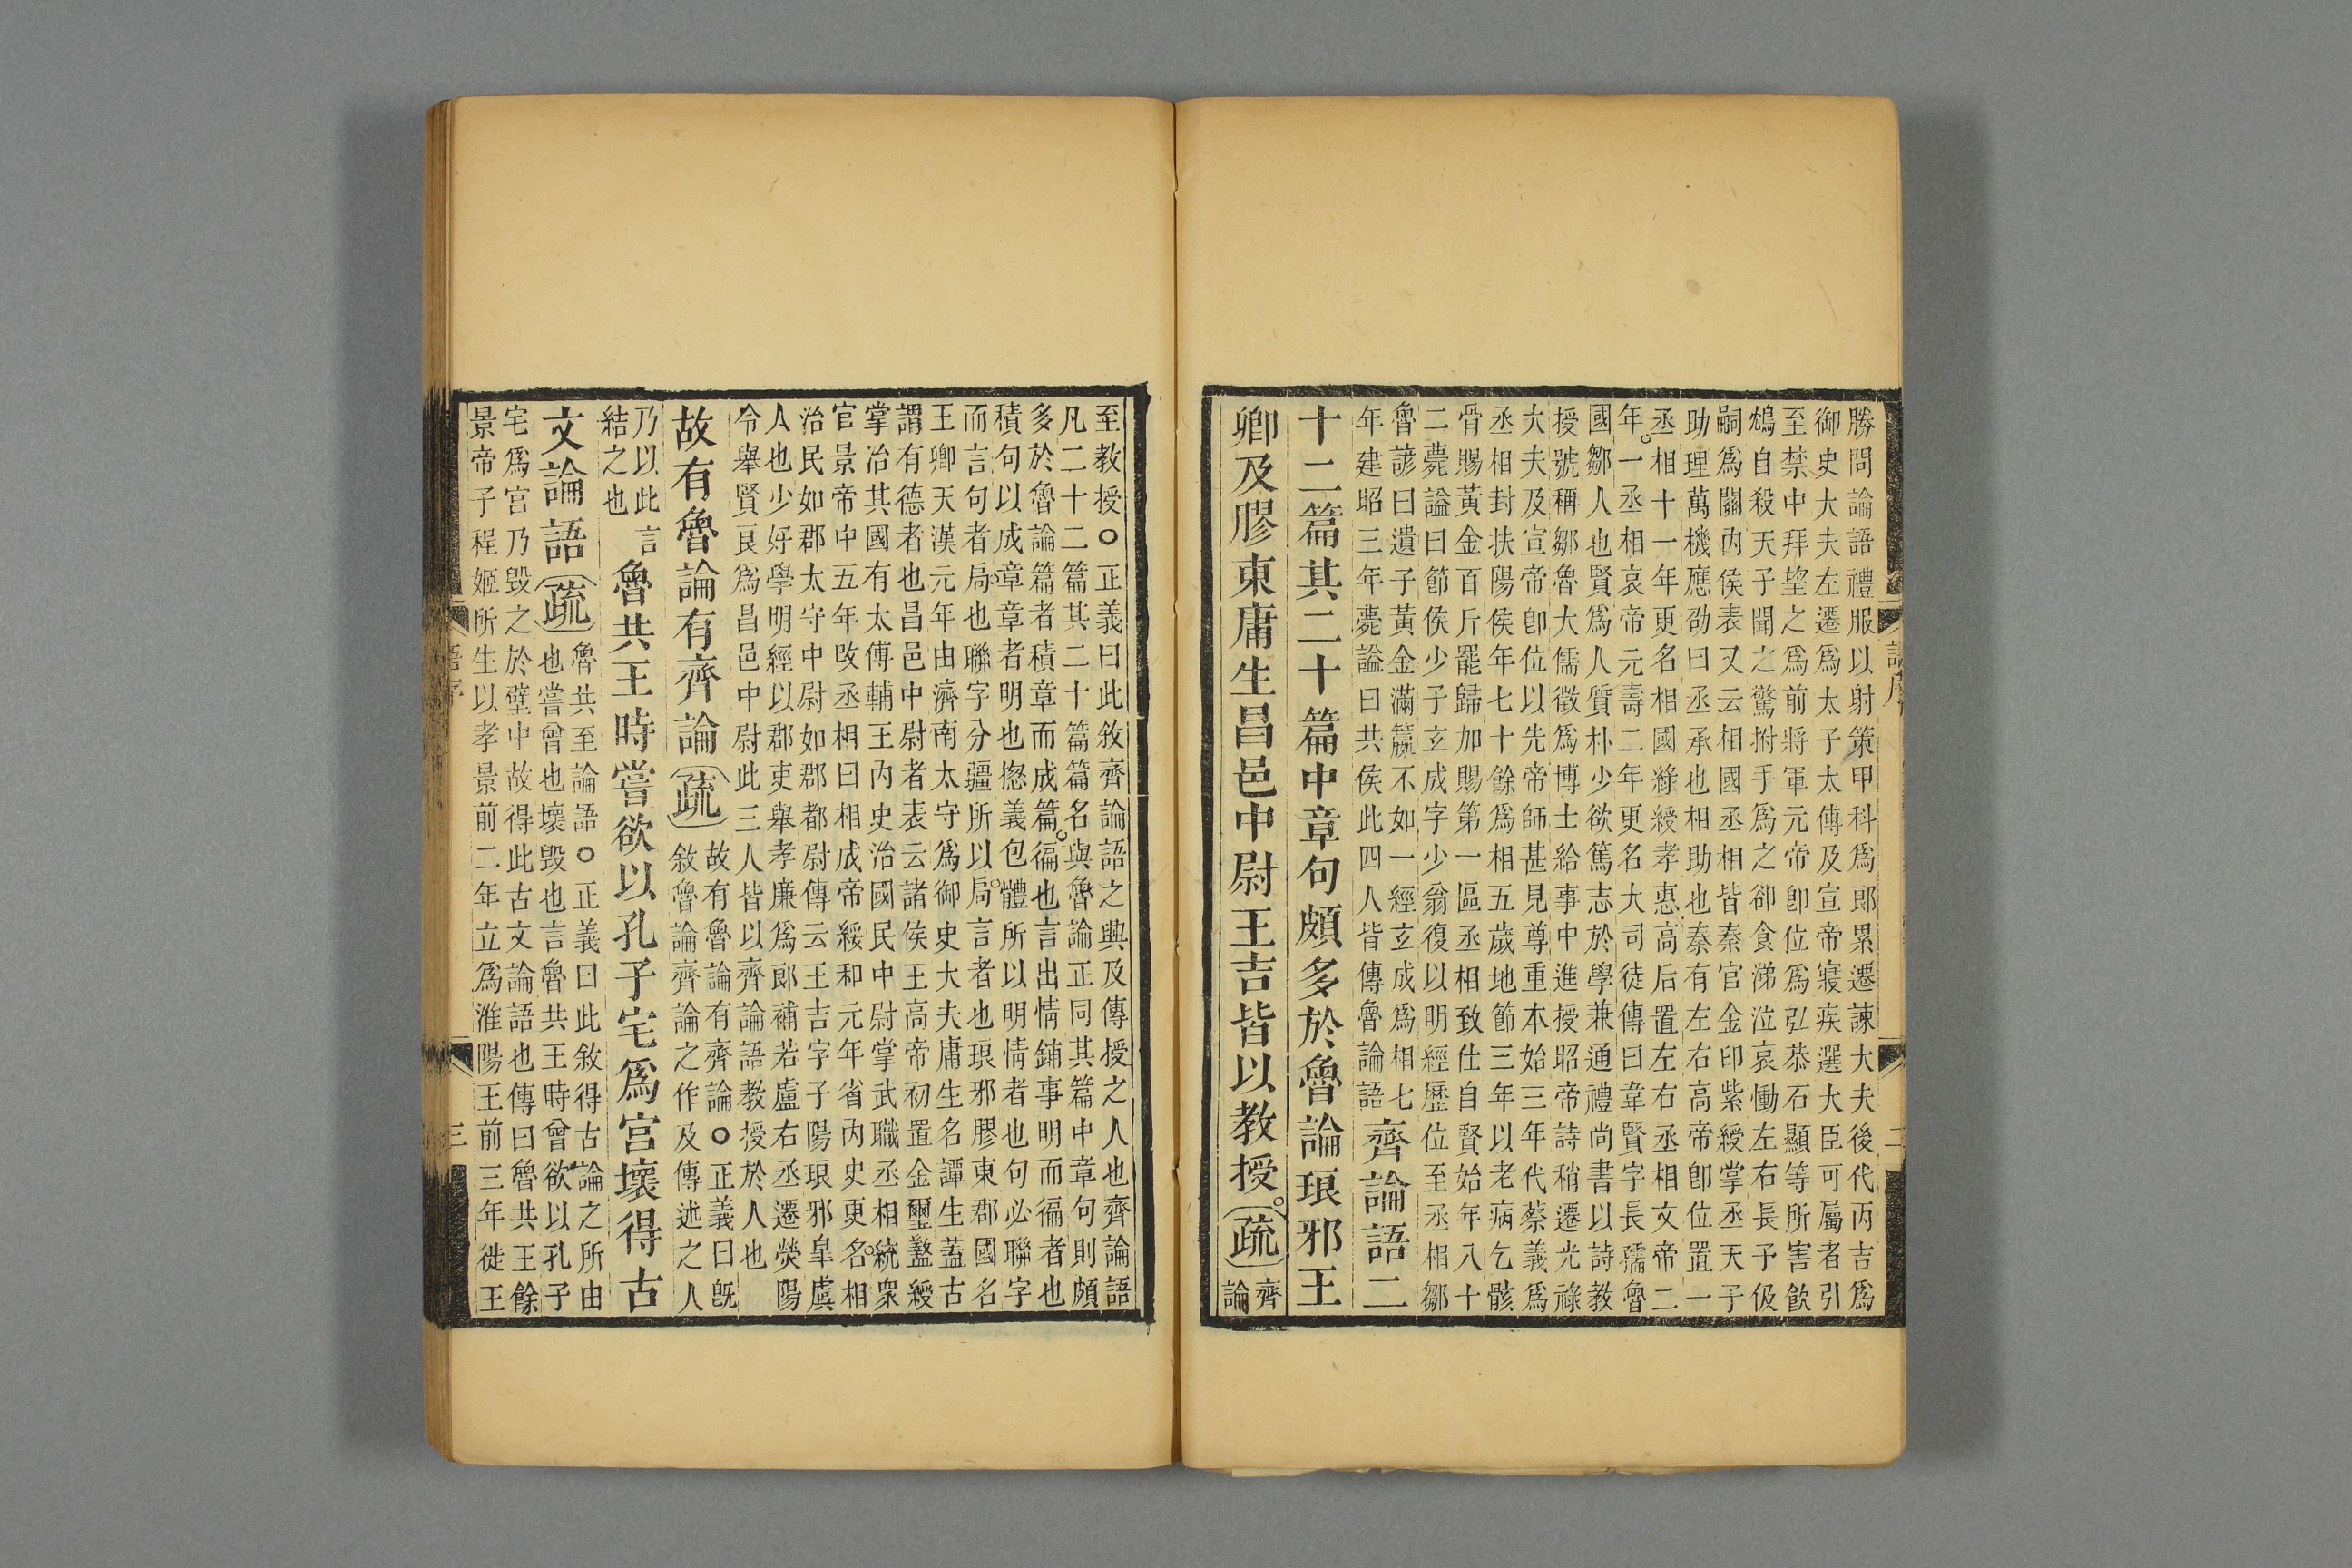 語序
二
勝問論語禮服以射策甲科爲郎累遷諫大夫後代丙吉爲
御史大夫左遷爲太子太傅及宣帝寢疾選大臣可屬者引
至禁中拜望之爲前將軍元帝卽位爲弘恭石顯等所害飮
鴆自殺天子聞之驚拊手爲之卻食涕泣哀慟左右長子伋
嗣爲關內侯表又云相國丞相皆秦官金印紫綬掌丞天子
助理萬機應劭曰丞承也相助也秦有左右高帝卽位置一
丞相十一年更名相國綠綬孝惠高后置左右丞相文帝二
年。一丞相哀帝元壽二年更名大司徒傳曰韋賢字長孺魯
國鄒人也賢爲人質朴少欲篤志於學兼通禮尚書以詩教
授號稱鄒魯大儒徵爲博士給事中進授昭帝詩稍遷光祿
大夫及宣帝卽位以先帝師甚見尊重本始三年代蔡義爲
丞相封扶陽侯年七十餘爲相五歲地節三年以老病乞骸
骨賜黃金百斤罷歸加賜第一區丞相致仕自賢始年八十
二薨謚曰節侯少子玄成字少翁復以明經歷位至丞相鄒
魯諺曰遺子黃金滿籯不如一經玄成爲相七
年建昭三年薨謚曰共侯此四人皆傳魯論語
齊論語二
十二篇其二十篇中章句頗多於魯論琅邪王
卿及膠東庸生昌邑中尉王吉皆以教授。疏
齊
論
至教授○正義曰此敘齊論語之興及傳授之人也齊論語
凡二十二篇其二十篇篇名與魯論正同其篇中章句則頗
多於魯論篇者積章而成篇。徧也言出情鋪事明而徧者也
積句以成章章者明也揔義包體所以明情者也句必聯字
而言句者局也聯字分疆所以局言者也琅邪膠東郡國名
王卿天漢元年由濟南太守爲御史大夫庸生名譚生蓋古
謂有德者也昌邑中尉者表云諸侯王高帝初置金璽盭綬
掌治其國有太傅輔王內史治國民中尉掌武職丞相統衆
官景帝中五年改丞相曰相成帝綏和元年省內史更名。相
治民如郡太守中尉如郡都尉傳云王吉字子陽琅邪皐虞
人也少好學明經以郡吏舉孝廉爲郎補若盧右丞遷熒陽
令舉賢良爲昌邑中尉此三人皆以齊論語教授於人也
故有魯論有齊論疏
故有魯論有齊論○正義曰旣
敘魯論齊論之作及傳述之人
乃以此言
結之也
魯共王時嘗欲以孔子宅爲宮壞得古
文論語疏
魯共至論語○正義曰此敘得古論之所由
也嘗曾也壞毀也言魯共王時曾欲以孔子
宅爲宮乃毀之於壁中故得此古文論語也傳曰魯共王餘
景帝子程姬所生以孝景前二年立爲淮陽王前三年徙王
語序
三